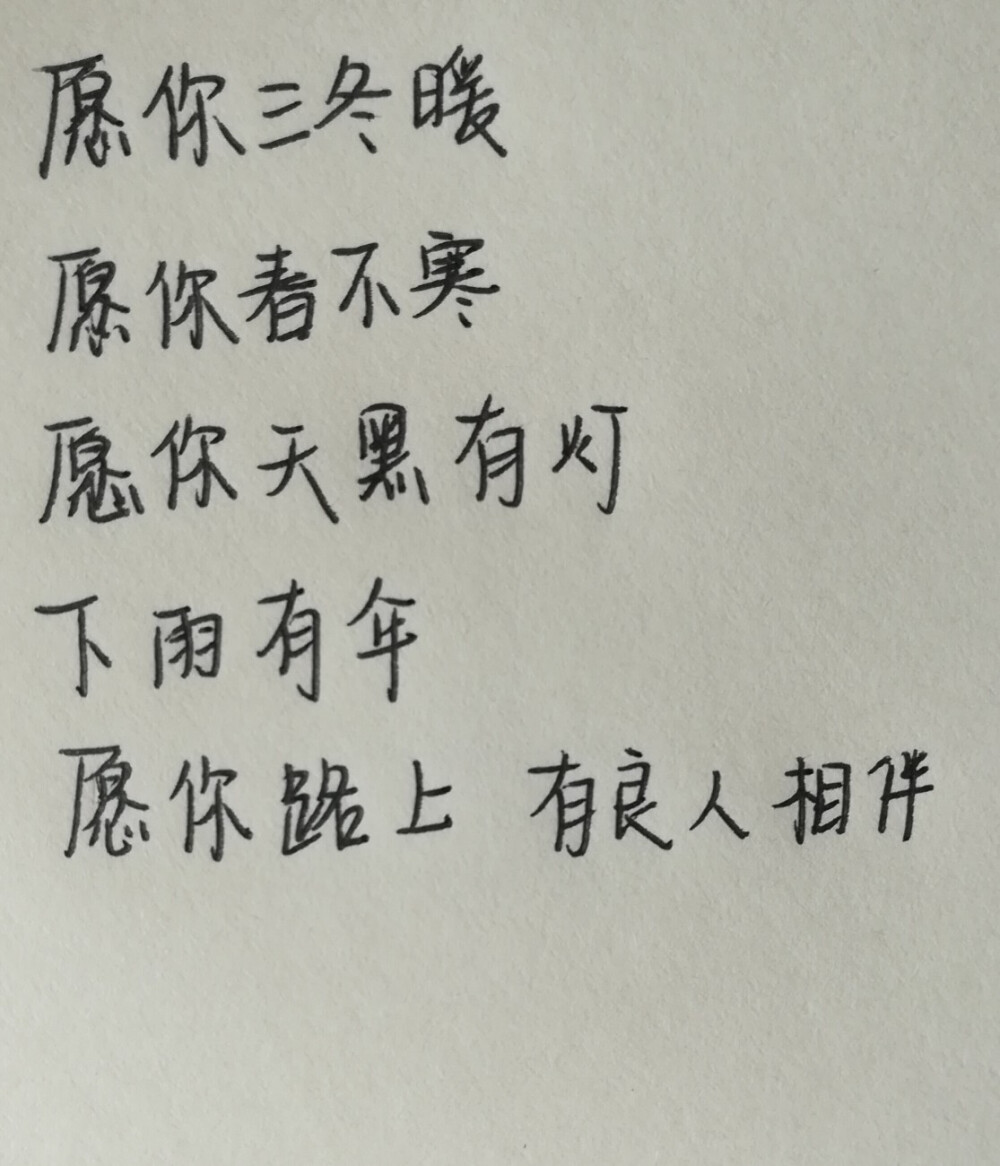 愿你三冬暖
愿你春不寒
愿你天黑有灯
下雨有伞
愿你路上 有良人相伴